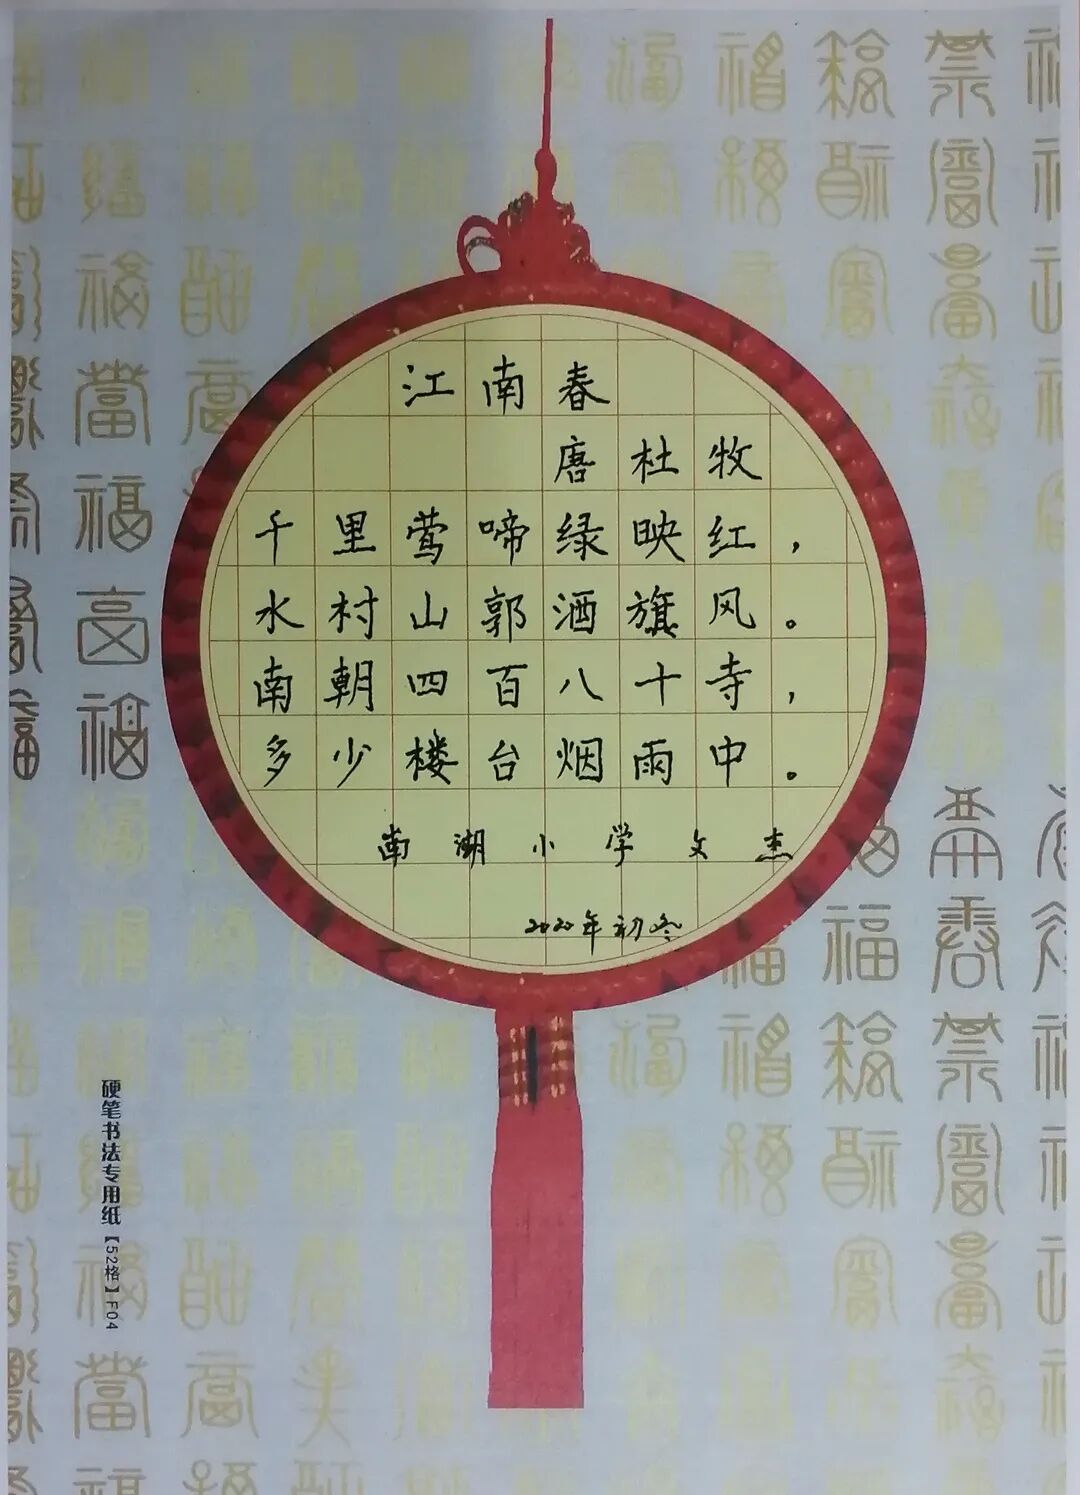 江南春
唐 杜牧
千里莺啼绿映红，
水村山郭酒旗风。
南朝四百八十寺，
多少楼台烟雨中。
南湖小学文杰
2020年初冬
硬笔书法专用纸【52格】F04